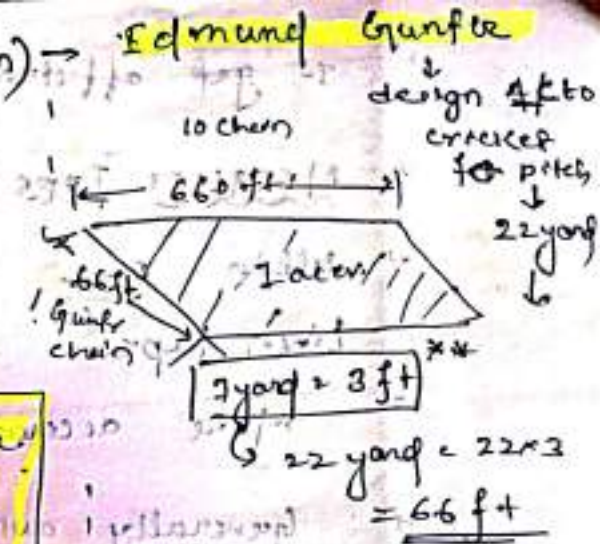 n) → Edmund Gunter
↓
design A/c to
cricket
for pitch
↓
22 yard
↓
10 chain
660 ft
66 ft.
1 Gunter
chain
1 acre
**
1 yard = 3 ft
22 yard = 22×3
= 66 ft